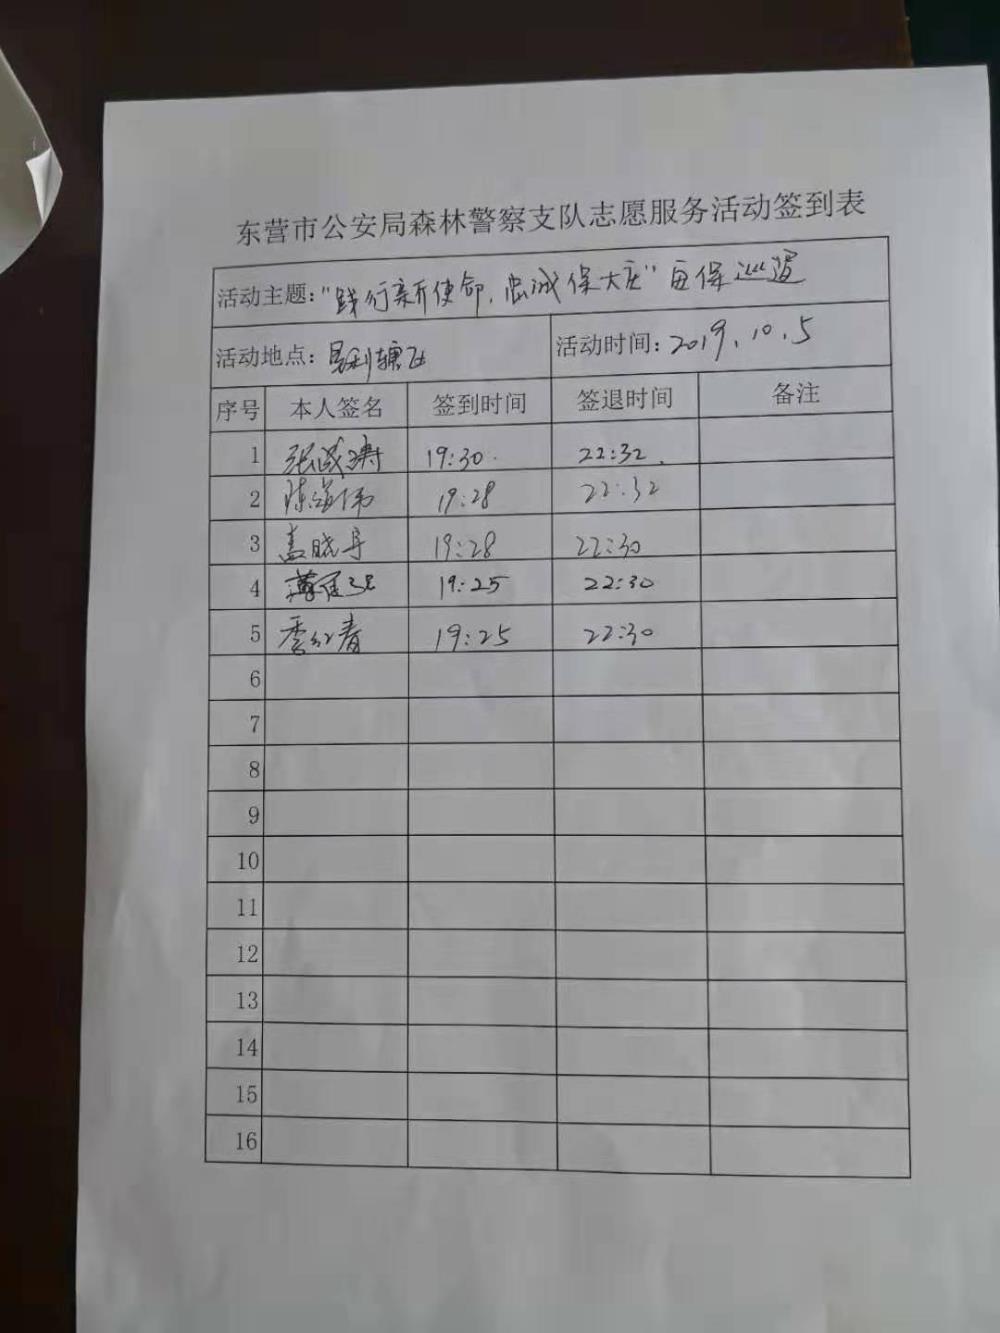 东营市公安局森林警察支队志愿服务活动签到表
活动主题:"践行新使命,忠诚保大庆"安保巡逻
活动地点: 辖区
活动时间: 2019.10.5
序号 本人签名 签到时间 签退时间 备注
1 19:30. 22:32.
2 19:28 22:32
3 孟晓 19:28 22:30
4 19:25 22:30
5 季红春 19:25 22:30
6
7
8
9
10
11
12
13
14
15
16